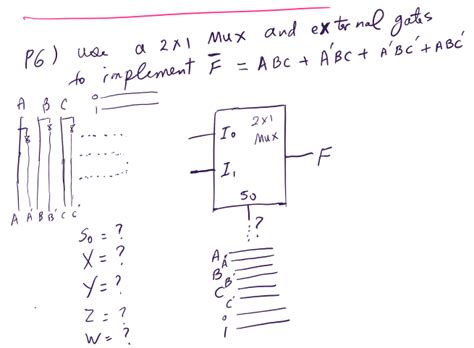 P6) use a 2x1 Mux and external gates
to implement F = ABC + A'BC + A'BC' + ABC'
A B C
0
1
A A' B B' C C'
I0 2x1
Mux
I1
S0
F
?
S0 = ?
X = ?
Y = ?
Z = ?
W = ?
A
A'
B
B'
C
C'
0
1